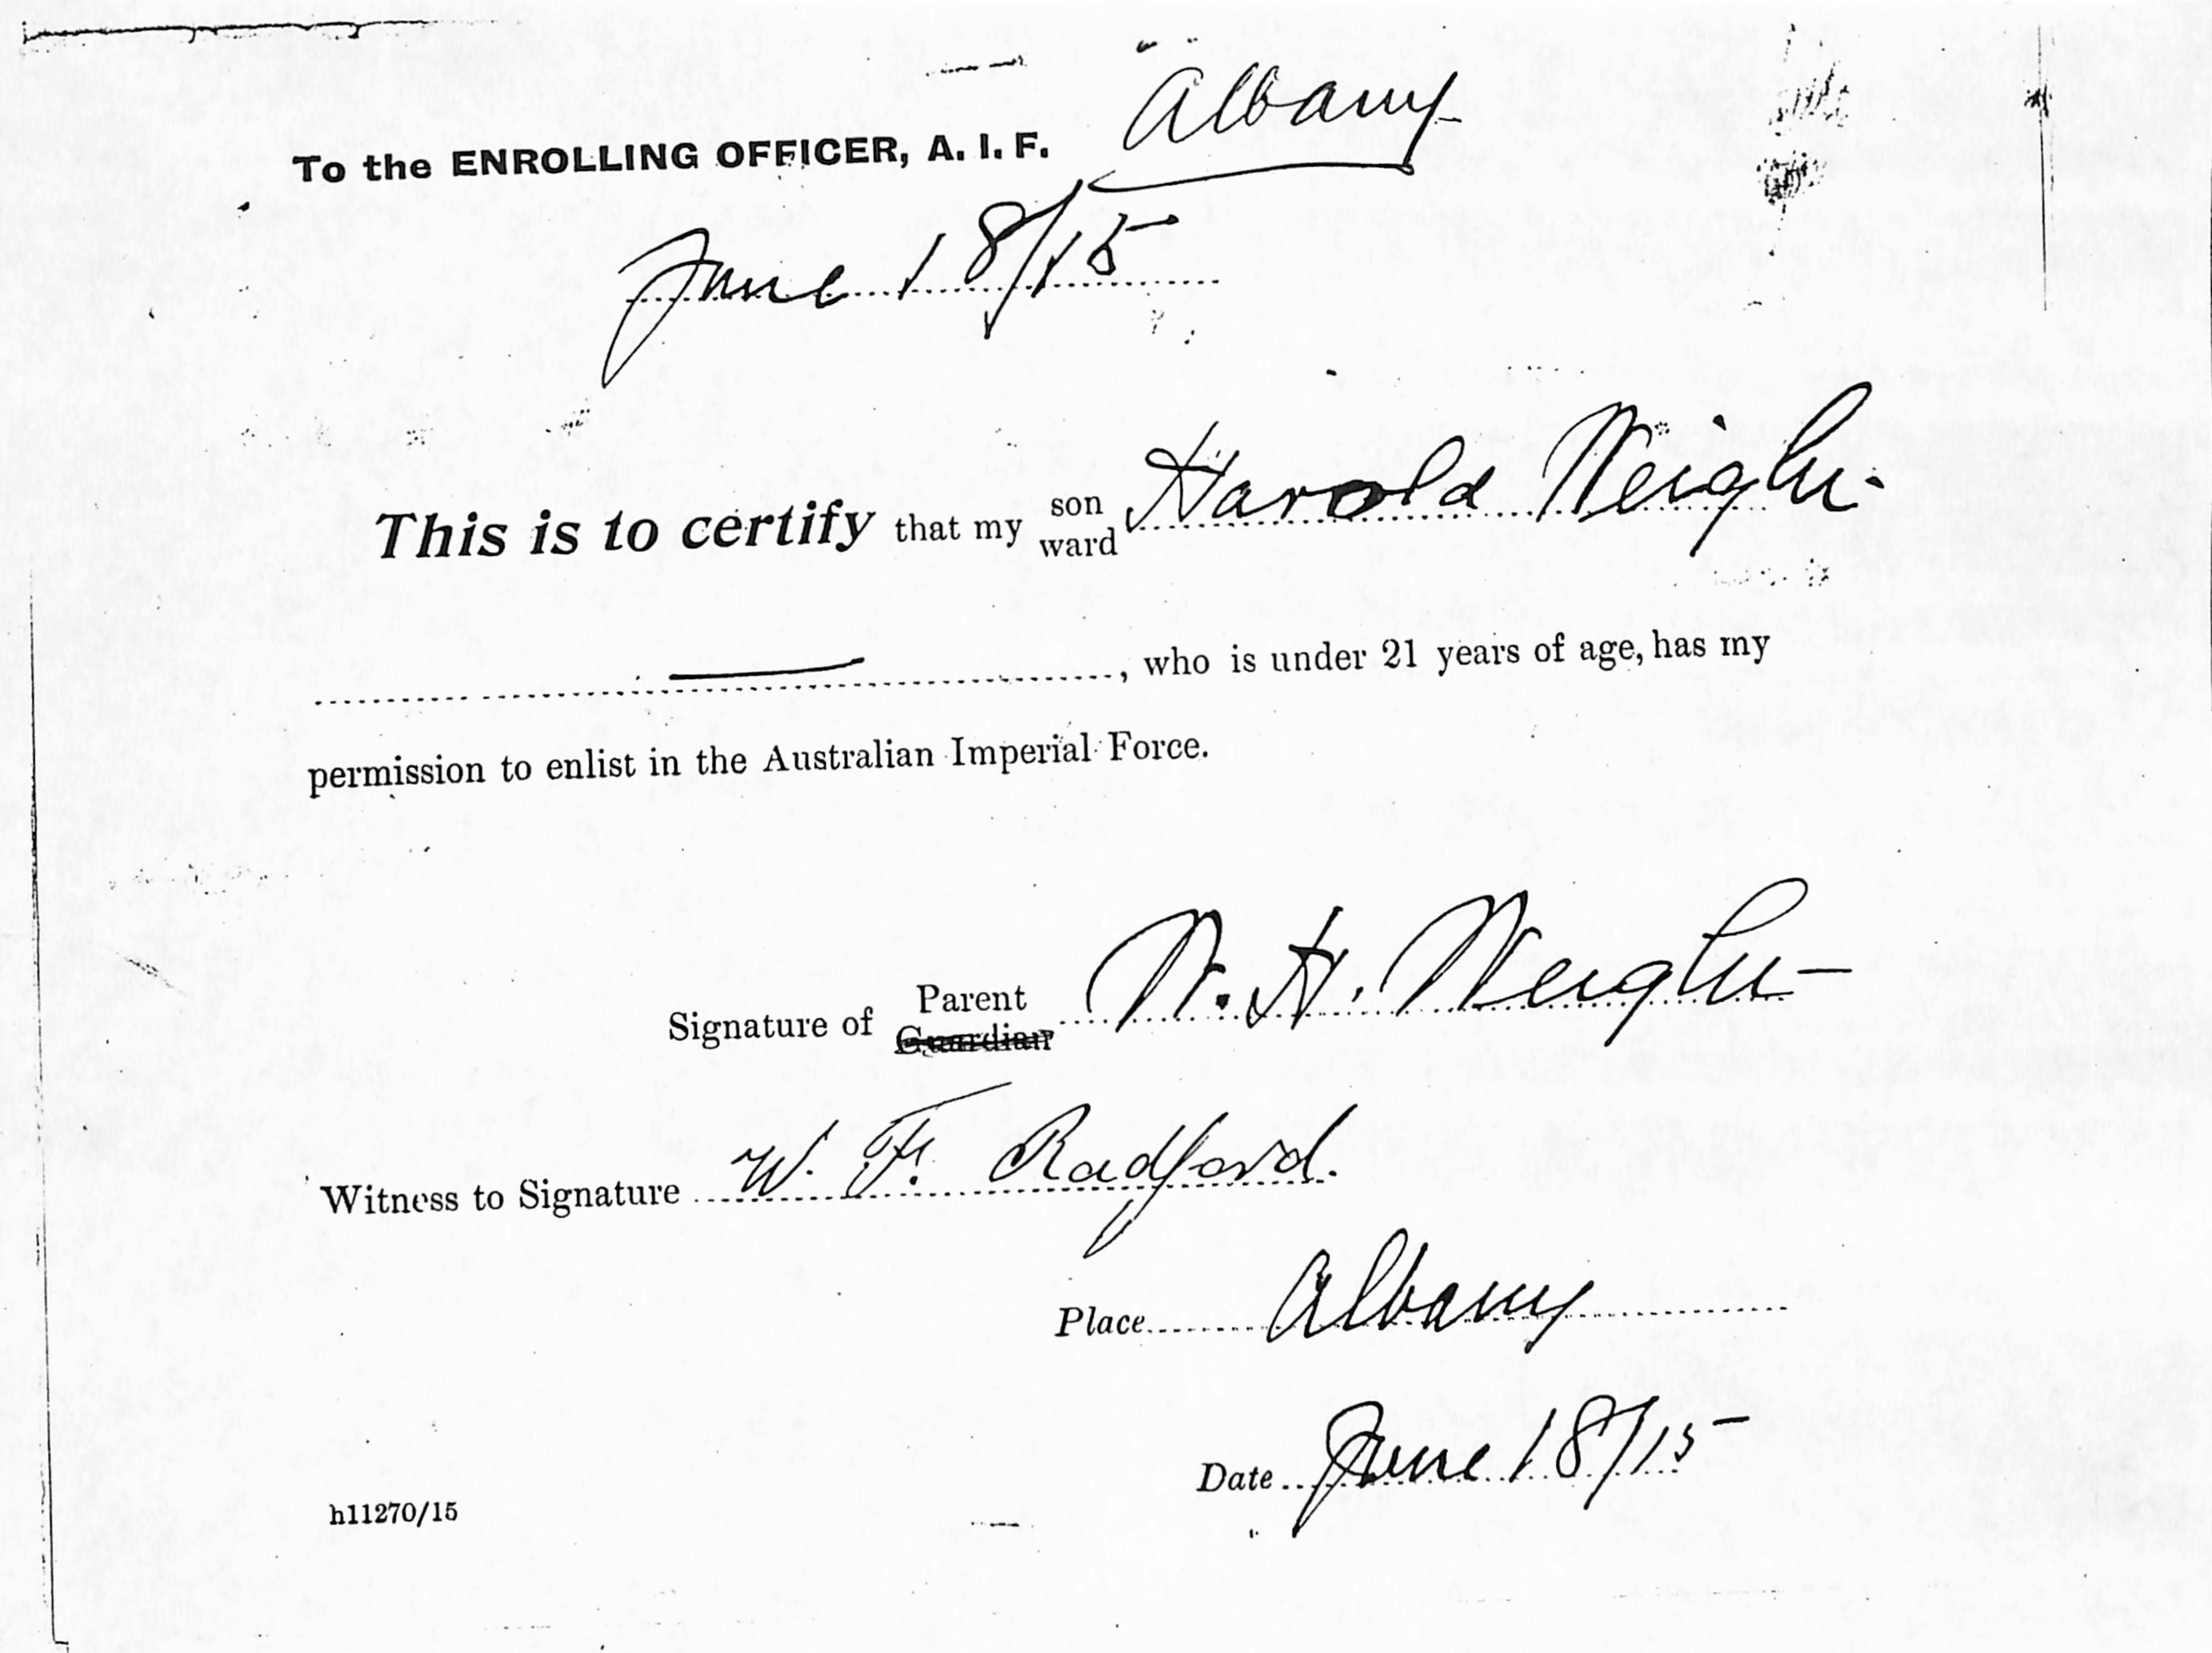 To the ENROLLING OFFICER, A. I. F. Albany
June 18/15
This is to certify that my son Harold
ward
, who is under 21 years of age, has my
permission to enlist in the Australian Imperial Force.
Signature of Parent H.
Guardian
Witness to Signature W. F. Radford.
Place Albany
Date June 18/15
h11270/15